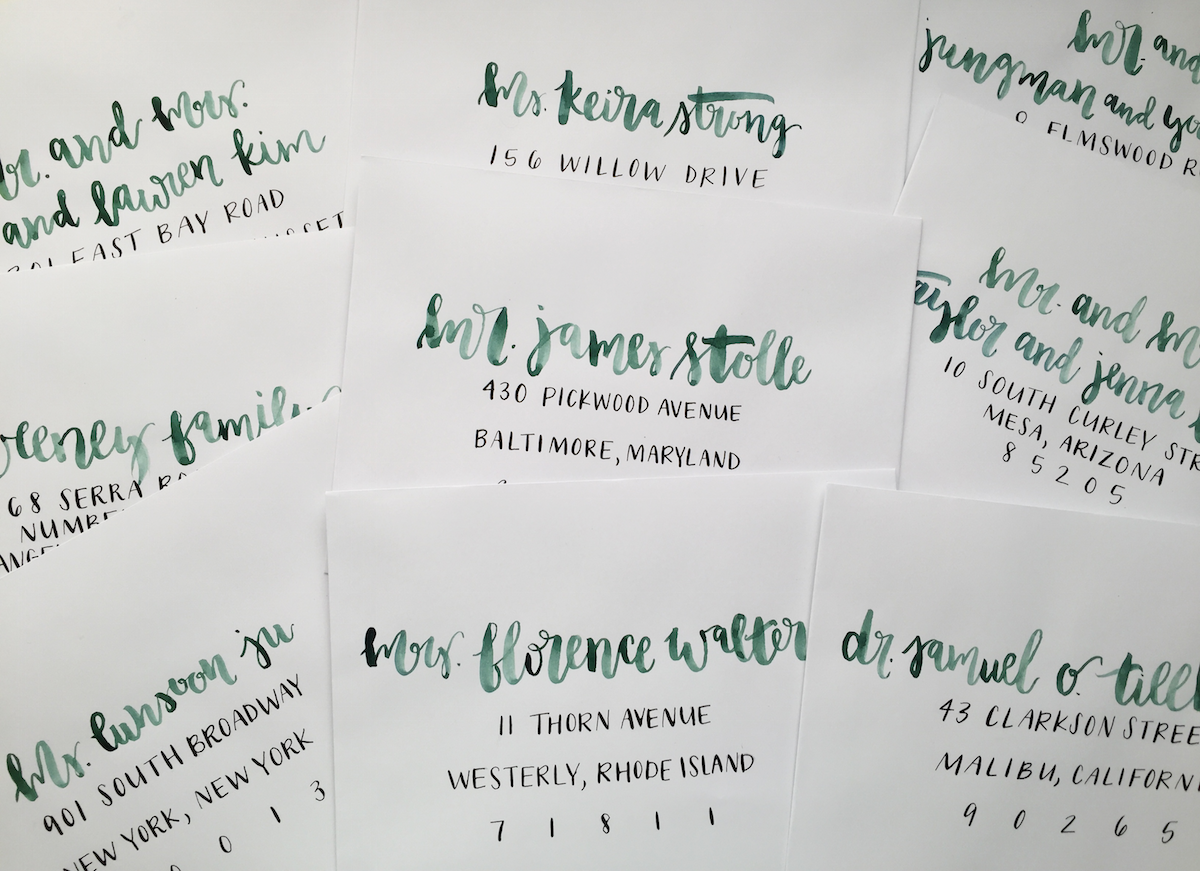 and mrs.
and lauren kim
EAST BAY ROAD
ms. keira strong
156 WILLOW DRIVE
mr. and
jungman and
ELMSWOOD
family
68 SERRA
mr. james stolle
430 PICKWOOD AVENUE
BALTIMORE, MARYLAND
mr. and
taylor and jenna
10 SOUTH CURLEY STR
MESA, ARIZONA
85205
ms. eunsoon ju
901 SOUTH BROADWAY
NEW YORK, NEW YORK
0 1 3
mrs. florence walter
11 THORN AVENUE
WESTERLY, RHODE ISLAND
7 1 8 1 1
dr. samuel o. till
43 CLARKSON STREE
MALIBU, CALIFORNI
9 0 2 6 5